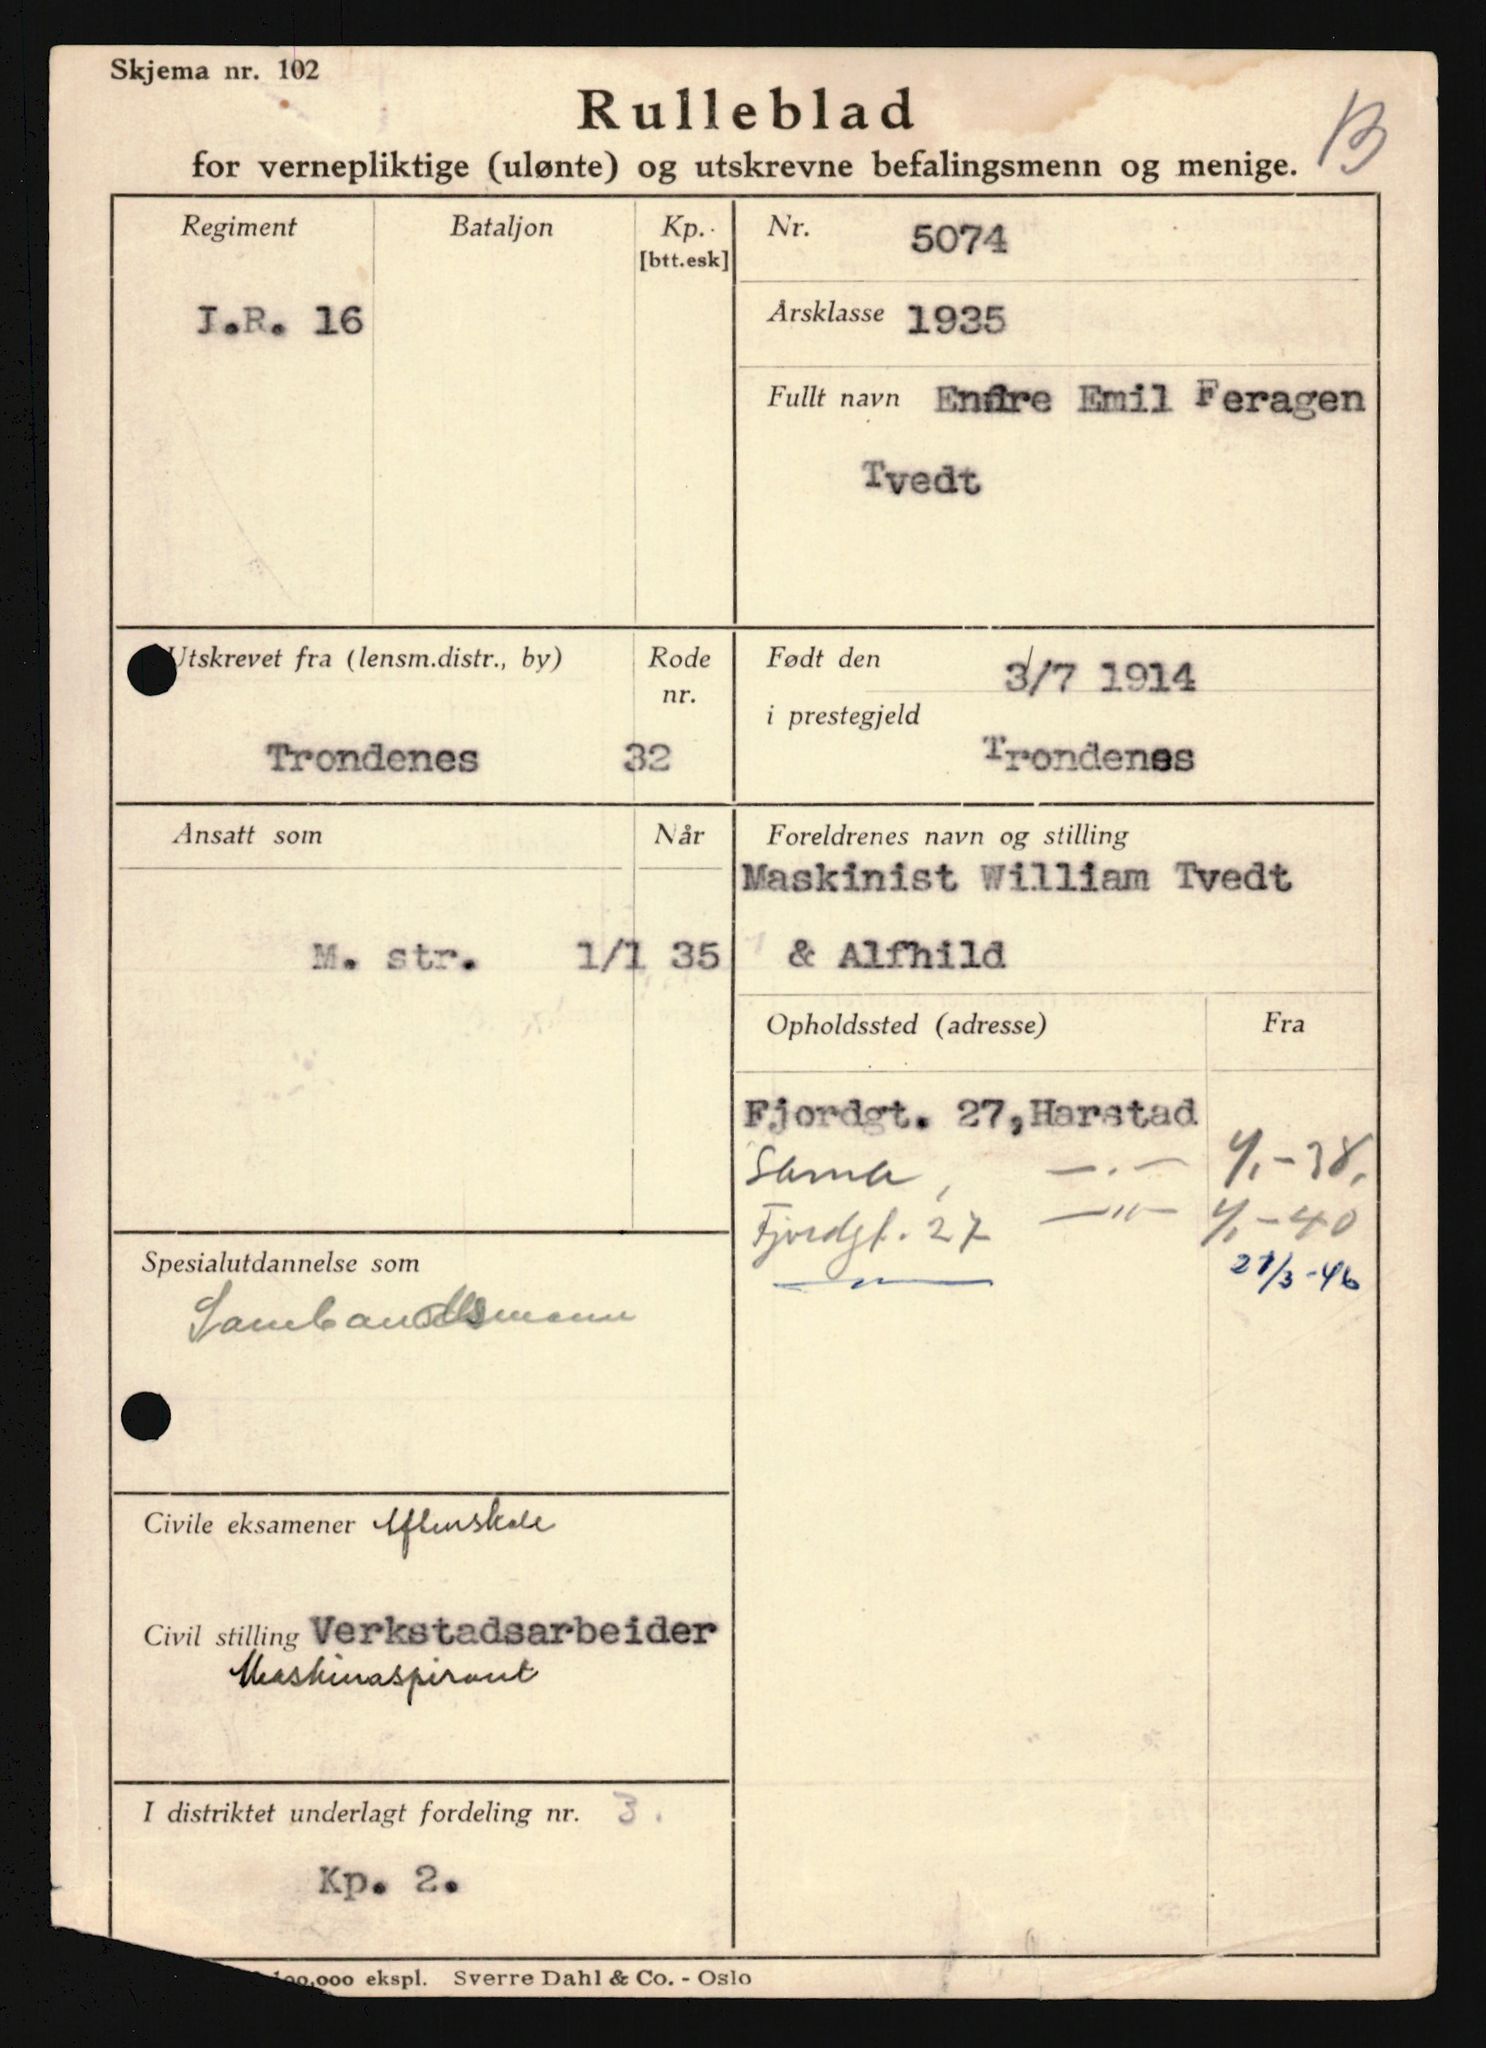 Skjema nr. 102
Rulleblad
for vernepliktige (ulønte) og utskrevne befalingsmenn og menige.
B
Regiment
Bataljon
Kp.
[btt.esk]
I.R. 16
Nr. 5074
Årsklasse 1935
Fullt navn Endre Emil Feragen
Tvedt
Utskrevet fra (lensm.distr., by)
Rode
nr.
Trondenes 32
Født den 3/7 1914
i prestegjeld
Trondenes
Ansatt som
Når
M. str. 1/1 35
Foreldrenes navn og stilling
Maskinist William Tvedt
& Alfhild
Opholdssted (adresse)
Fra
Fjordgt. 27, Harstad
Sama, —.— 1/1-38.
Fjordgt. 27 —"— 1/1-40
—"— 21/3-46
Spesialutdannelse som
Sambandsmann
Civile eksamener Aftenskole
Civil stilling Verkstadsarbeider
Maskinaspirant
I distriktet underlagt fordeling nr. 3.
Kp. 2.
100,000 ekspl. Sverre Dahl & Co. - Oslo